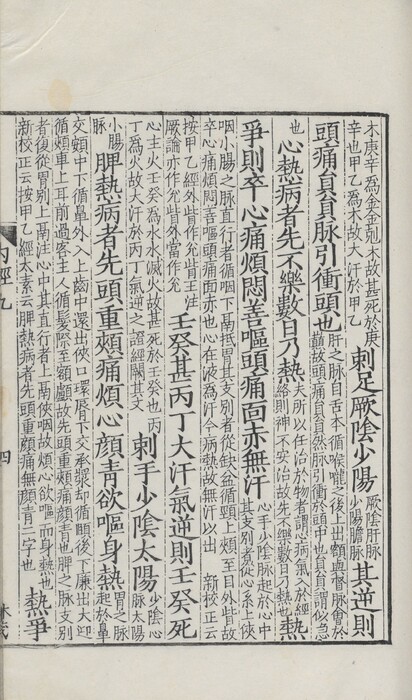 木庚辛爲金金剋木故甚死於庚
辛也甲乙爲木故大汗於甲乙
刺足厥陰少陽
厥陰肝脉
少陽膽脉
其逆則
頭痛員員脉引衝頭也
肝之脉自舌本循喉嚨之後上出額與督脉會於
巔故頭痛員員然脉引衝於頭中也員員謂似急
也
心熱病者先不樂數日乃熱
夫所以任治於物者謂心病氣入於經
絡則神不安治故先不樂數日乃熱也
熱
爭則卒心痛煩悶善嘔頭痛面赤無汗
心手少陰脉起於心中
其支別者從心系上俠
咽小腸之脉直行者循咽下鬲抵胃其支別者從缺盆循頸上頰至目外眥故
卒心痛煩悶善嘔頭痛面赤也心在液爲汗今病熱故無汗以出 新校正云
按甲乙經外眥作兌眥王注
厥論亦作兌眥外當作兌
壬癸甚丙丁大汗氣逆則壬癸死
心主火壬癸爲水水滅火故甚死於壬癸也丙
丁爲火故大汗於丙丁氣逆之證經闕其文
刺手少陰太陽
少陰心
脉太陽
小腸
脉
脾熱病者先頭重頰痛煩心顏青欲嘔身熱
胃之脉
起於鼻
交頞中下循鼻外入上齒中還出俠口環脣下交承漿却循頤後下廉出大迎
循頰車上耳前過客主人循髮際至額顱故先頭重頰痛顏青也脾之脉支別
者復從胃別上鬲注心中其直行者上鬲俠咽故煩心欲嘔而身熱也
新校正云按甲乙經太素云脾熱病者先頭重頰痛無顏青二字也
熱爭
內經九
四